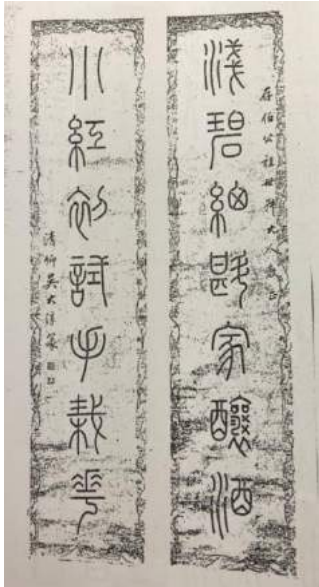 存伯公祖世大人正
淺碧細斟家釀酒
小紅初試手栽花
清卿吳大澂篆